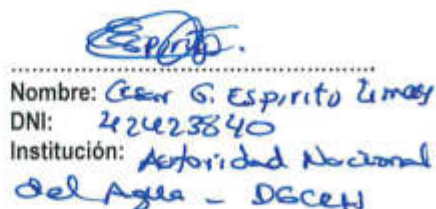 Espirito.
Nombre: Cesar G. Espirito Limay
DNI: 42423840
Institución: Autoridad Nacional
del Agua - DGCRH